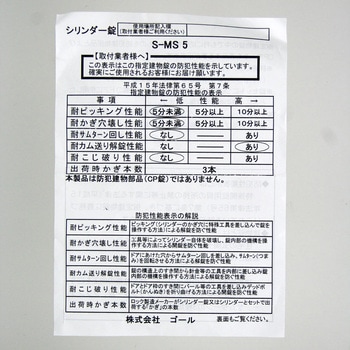 シリンダー錠
使用場所記入欄
(取付業者様がご利用ください)
S-MS 5
【取付業者様へ】
この表示はこの指定建物錠の防犯性能を示しています。
確実にご使用されるお客様にお届け願います。
平成15年法律第65号 第7条
指定建物錠の防犯性能の表示
事項 ← 低 性能 高 →
耐ピッキング性能 5分未満 5分以上 10分以上
耐かぎ穴壊し性能 5分未満 5分以上 10分以上
耐サムターン回し性能 なし —— あり
耐カム送り解錠性能 なし —— あり
耐こじ破り性能 なし —— あり
出荷時かぎ本数 3本
本製品は防犯建物部品(CP錠)ではありません。
防犯性能表示の解説
耐ピッキング性能 ピッキング(シリンダーのかぎ穴に特殊工具を差し込んで錠を操作する方法)による解錠を防ぐ性能
耐かぎ穴壊し性能 工具等によってシリンダー自体を破壊し、錠内部の機構を操作する方法による解錠を防ぐ性能
耐サムターン回し性能 ドアにあけた穴からサムターン廻し工具を差込み、サムターン(つまみ)を回転させる方法による解錠を防ぐ性能
耐カム送り解錠性能 錠の構造上のすき間から針金等の工具を内部に差し込み錠内部の機構を操作する方法による解錠を防ぐ性能
耐こじ破り性能 ドアとドア枠のすき間にバール等の工具を差込みデッドボルト(かんぬき)を折り曲げる方法による開扉を防ぐ性能
出荷時かぎ本数 ロック製造メーカーがシリンダー錠又はシリンダーとセットで出荷する「かぎ」の本数
株式会社 ゴール 裏面もご覧ください。